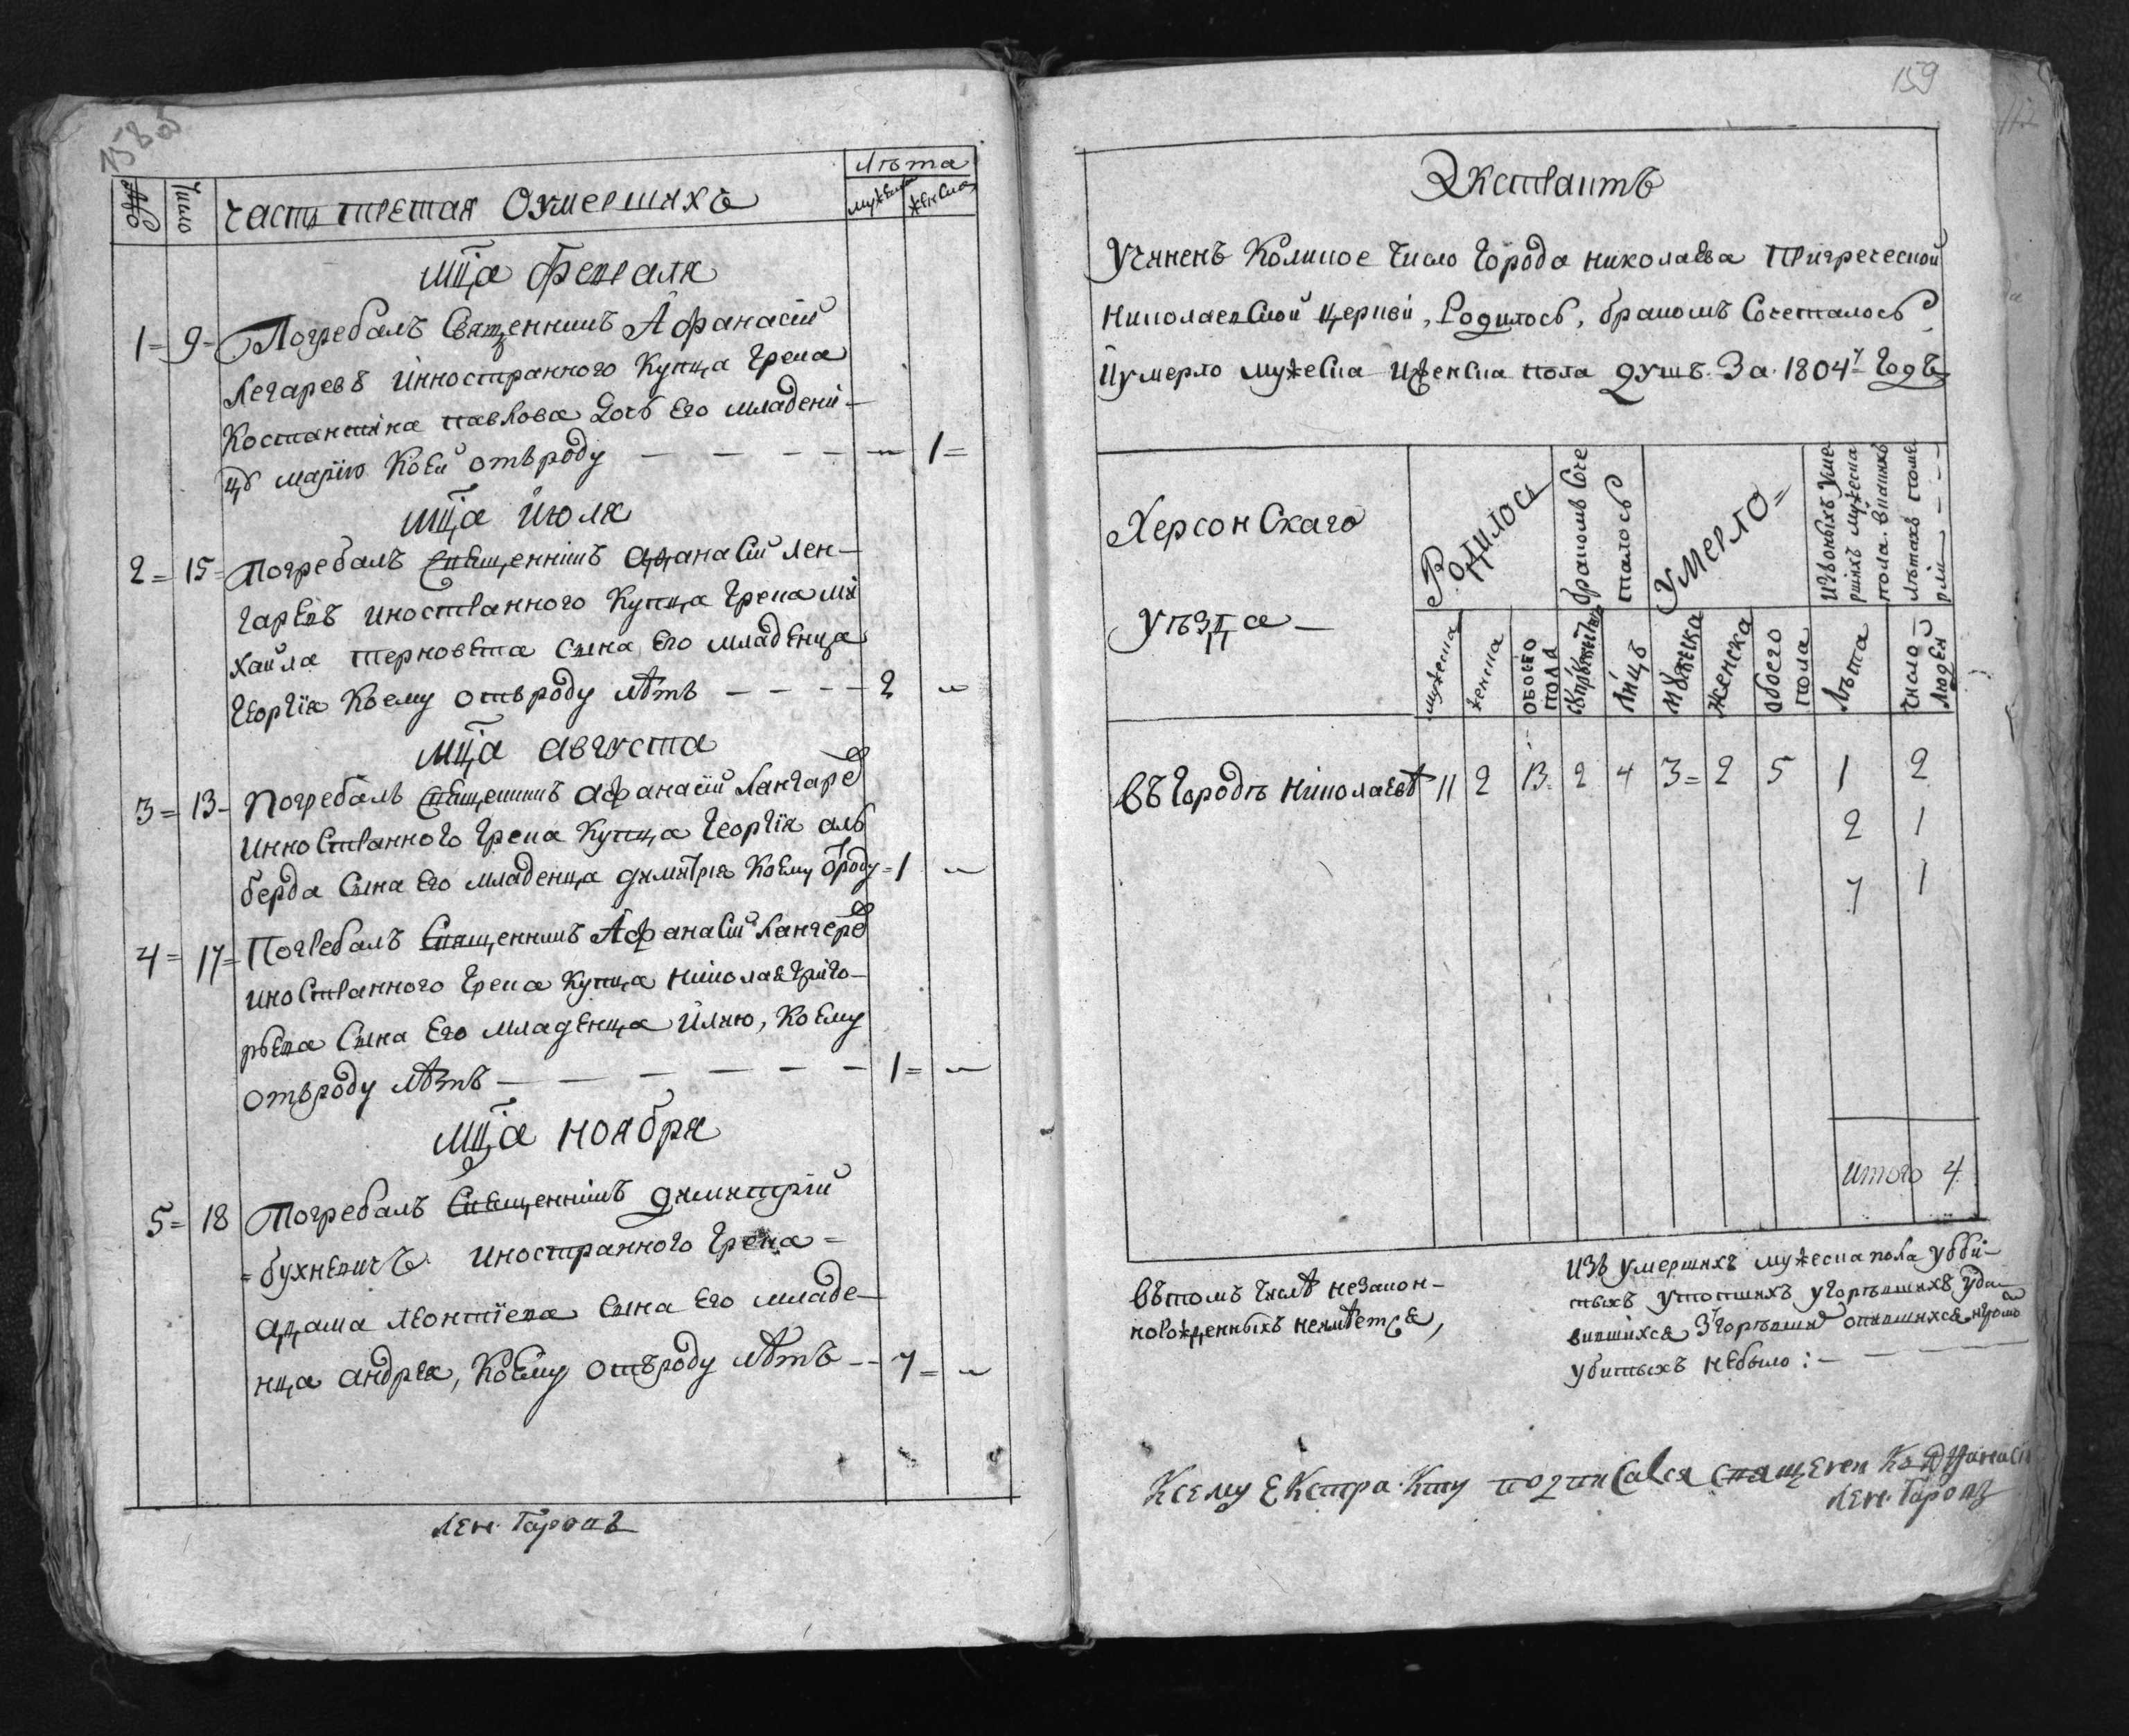 158 об
№
Число
Часть третая Оумершихъ
Лѣта
мужеска
женска
мц̃а февраля
1 = 9 - Погребалъ Священникъ Афанасій
Легаревъ Инностранного Купца Грека
Костантина павлова Дочь Его младени-
цѣ марїю Коей отъроду — — — — 1 =
мц̃а Июля
2 = 15 = Погребалъ Священникъ афанасій Лен-
гаревъ иностранного Купца Грека ми
хайла терновета сына Его младенца
Георгія Коему отъроду лѣтъ - - - - 2
мц̃а августа
3 = 13 - Погребалъ Священникъ афанасій Лангаре
инностранного Грека Купца Георгія аль
берда Сына Его младенца димитрія Коему ѿроду = 1
4 = 17 = Погребалъ Священникъ Афанасій Лангере
иностранного Грека Купца николая Григо-
рьева Сына Его младенца Илию, Коему
отъроду лѣтъ — — — — — — 1 =
мц̃а ноября
5 = 18 Погребалъ Священникъ димитрій
= бухневичъ иностранного Грека =
адама леонтїева сына Его младе-
нца андрея, Коему отъроду лѣтъ - - 7 =
Лен. Гаровъ
159
Экстрактъ
Учиненъ Коликое Число Города николаева При греческой
николаевской церкви, Родилось, бракомъ Сочеталось
И умерло мужеска И женска пола душъ. За 1804й Годъ
Херсонскаго
уѣзда —
Родилось
бракомъ Соче
талось
Умерло =
Изъ оныхъ уме
ршихъ мужеска
пола. в какихъ
лѣтахъ поме
рли - - -
мужеска
женска
обоего
пола
лицъ
мужска
женска
обоего
пола
лѣта
число
людей
въ Городѣ николаевѣ 11 2 13 2 4 3 = 2 5 1 2
2 1
7 1
итого 4
въ томъ числѣ незакон-
норожденныхъ неимѣется,
Изъ умершихъ мужеска пола убби-
тыхъ утопшихъ угорѣвшихъ уда-
вившихся Згорѣвши опившихся
убитыхъ небыло : — — — —
Ксему Екстракту подписался священ
Лен. Гаровъ